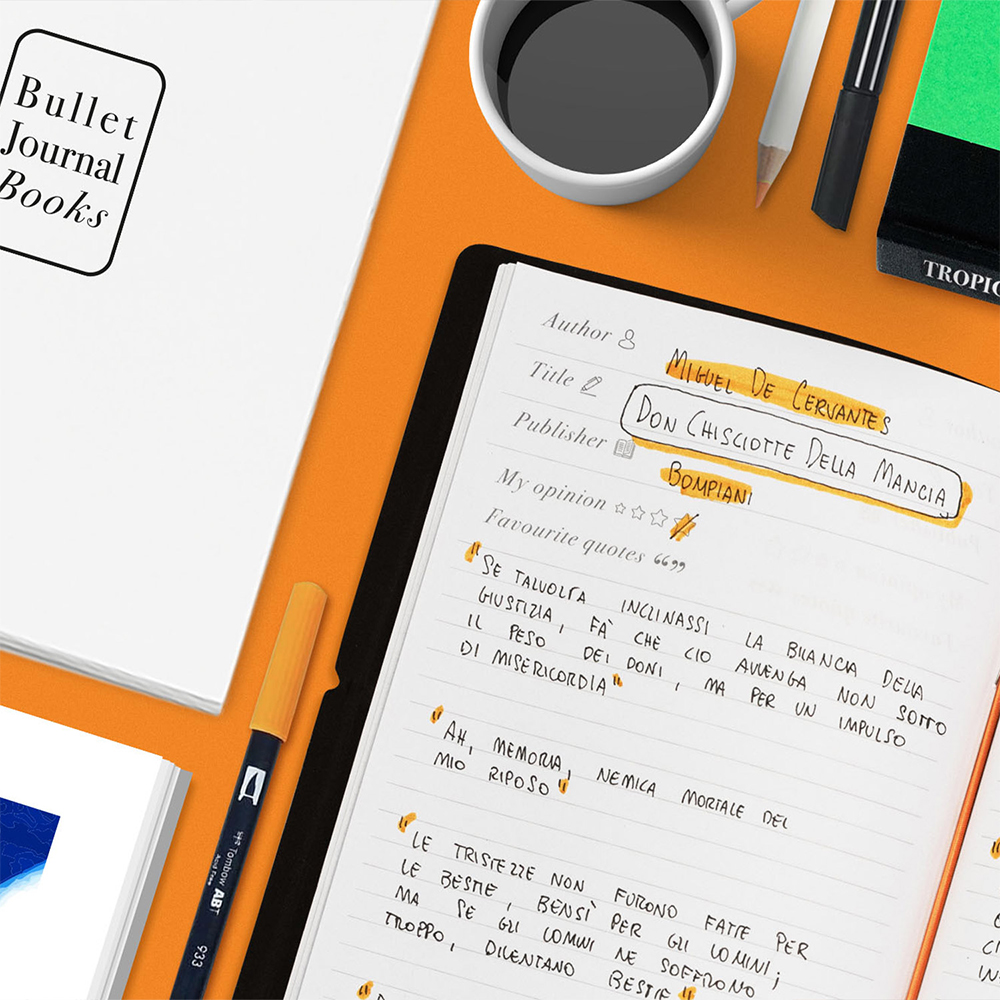 Bullet
Journal
Books
TROPIC
Author
MIGUEL DE CERVANTES
Title
DON CHISCIOTTE DELLA MANCIA
Publisher
BOMPIANI
My opinion
Favourite quotes 6699
"SE TALVOLTA INCLINASSI LA BILANCIA DELLA
GIUSTIZIA, FÀ CHE CIO AVVENGA NON SOTTO
IL PESO DEI DONI, MA PER UN IMPULSO
DI MISERICORDIA"
"AH, MEMORIA, NEMICA MORTALE DEL
MIO RIPOSO"
"LE TRISTEZZE NON FURONO FATTE PER
LE BESTIE, BENSÌ PER GLI UOMINI;
MA SE GLI UOMINI NE SOFFRONO
TROPPO, DIVENTANO BESTIE"
Tombow ABT
Acid Free
933